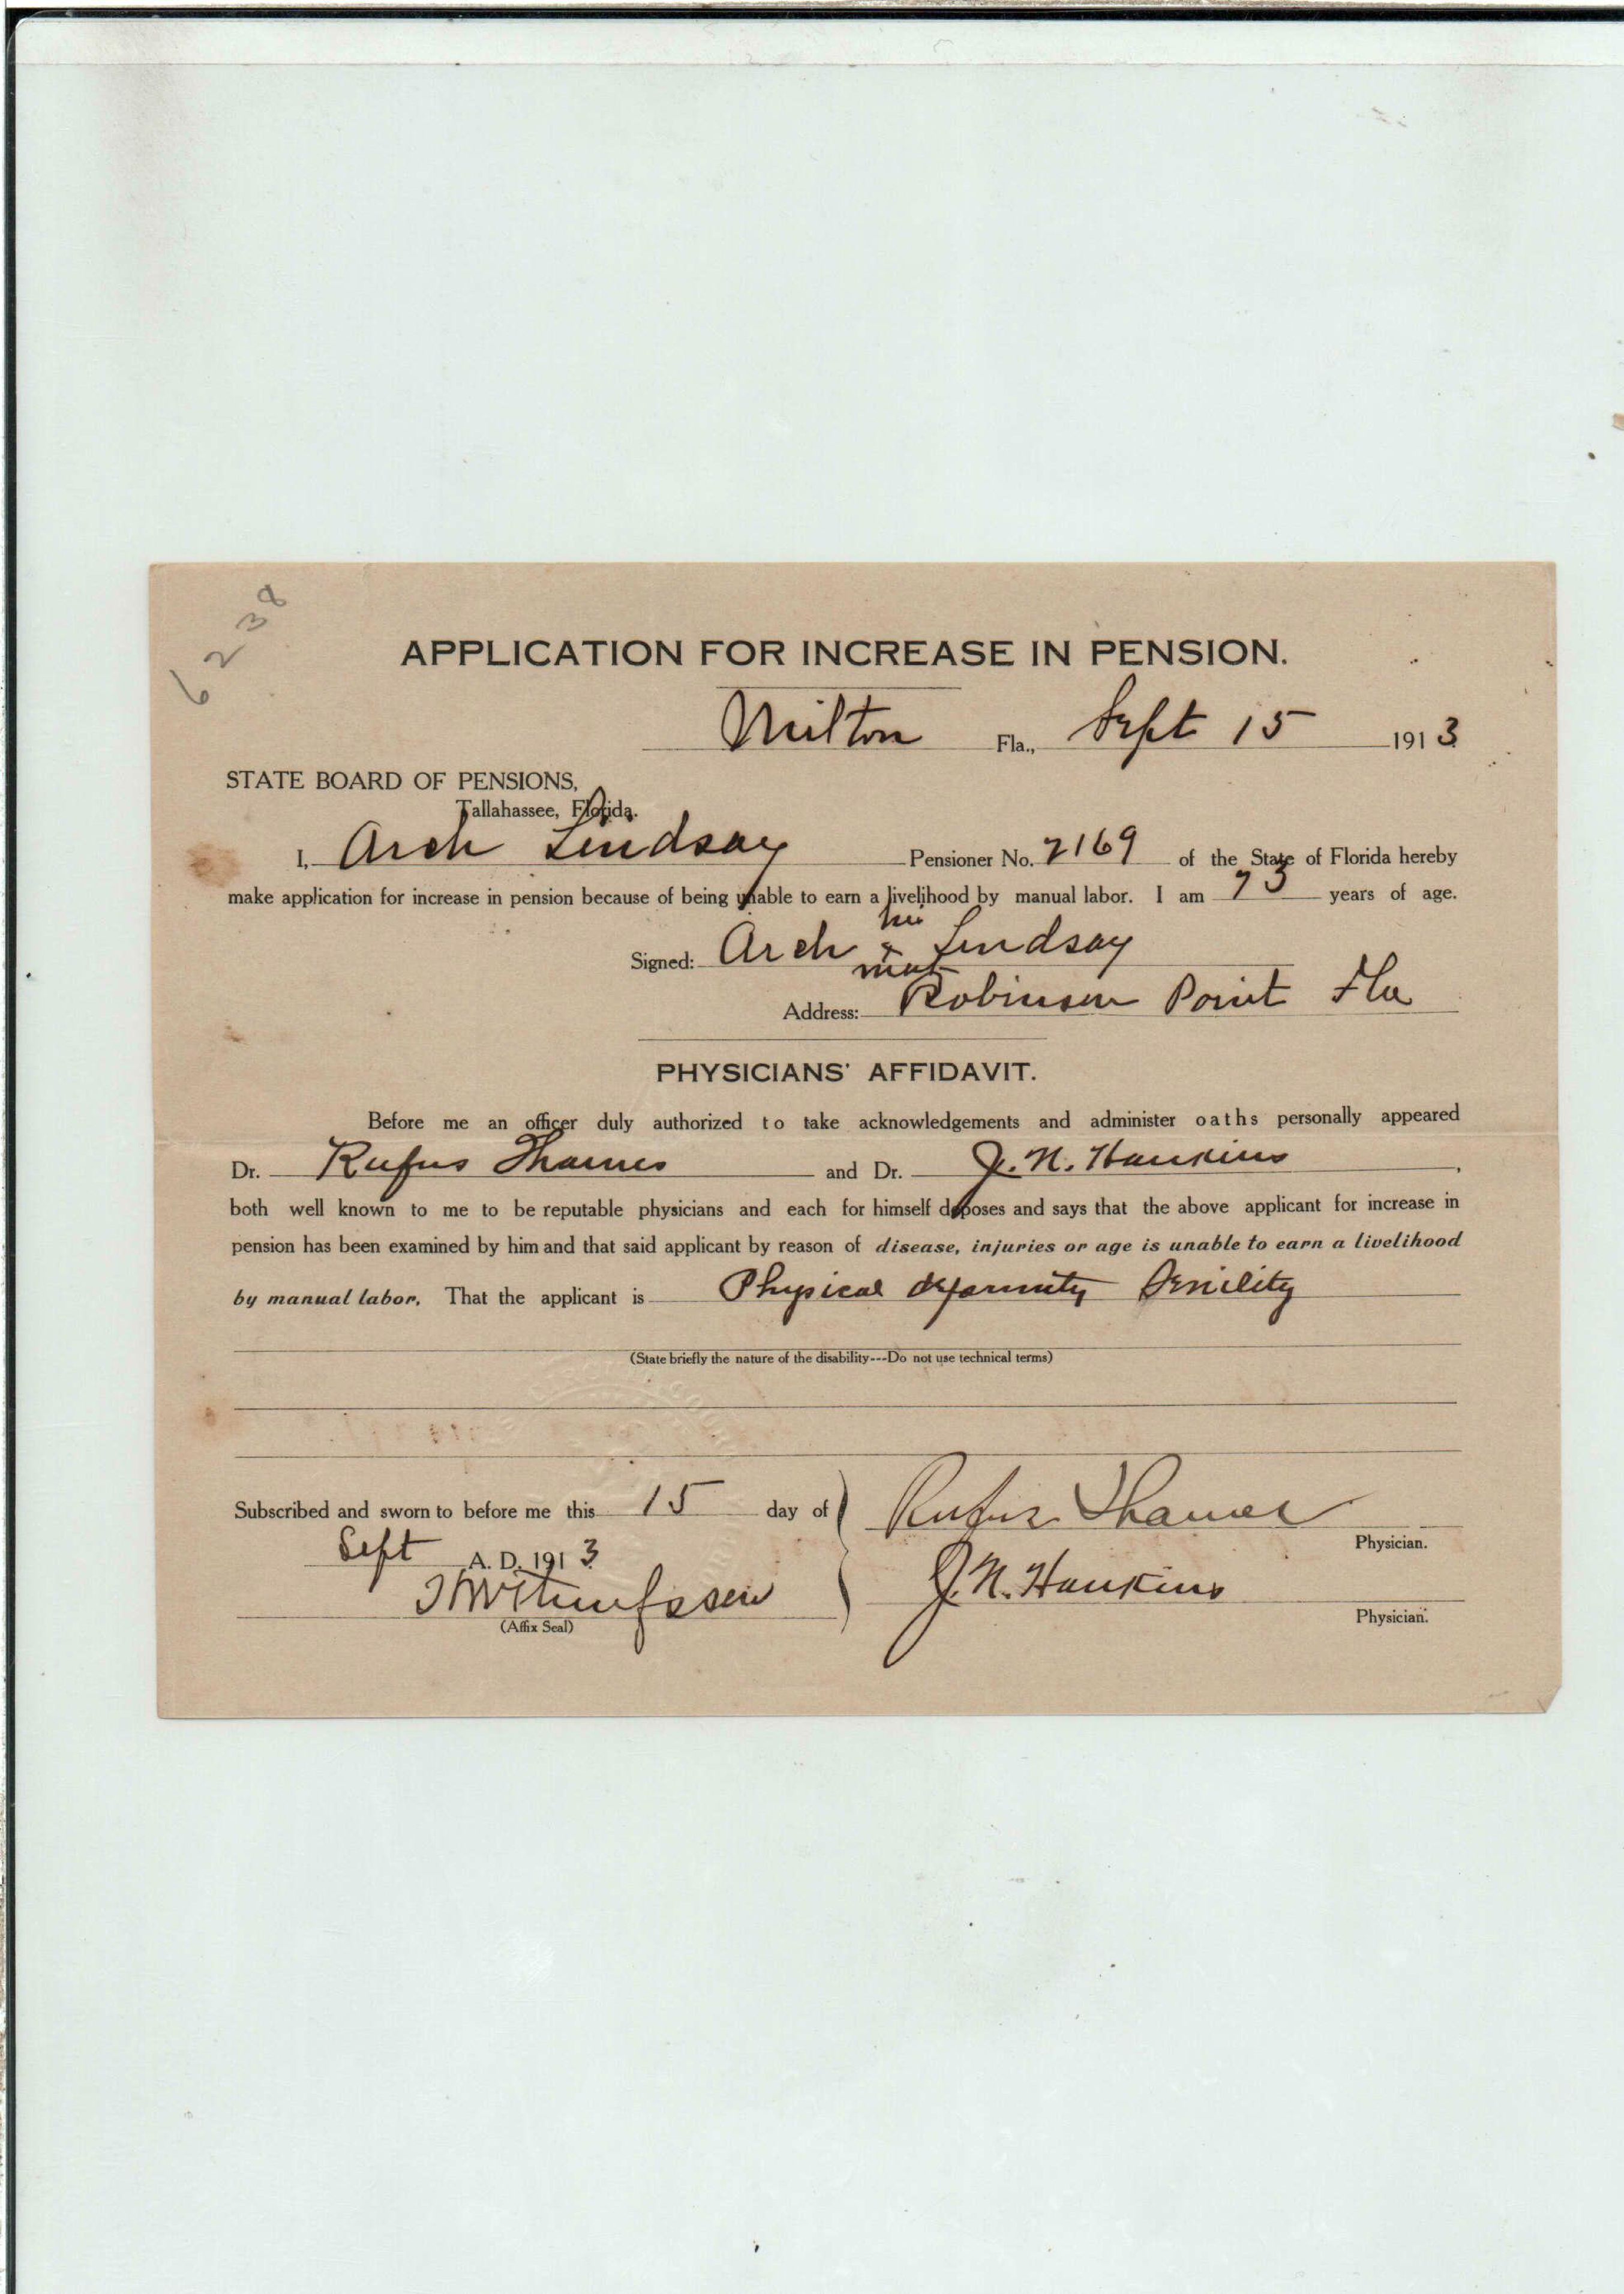 6238
APPLICATION FOR INCREASE IN PENSION.
Milton Fla., Sept 15 1913
STATE BOARD OF PENSIONS,
Tallahassee, Florida.
I, Arch Lindsay Pensioner No. 2169 of the State of Florida hereby
make application for increase in pension because of being unable to earn a livelihood by manual labor. I am 73 years of age.
his
Signed: Arch x Lindsay
mark
Address: Robinson Point Fla
PHYSICIANS' AFFIDAVIT.
Before me an officer duly authorized to take acknowledgements and administer oaths personally appeared
Dr. Rufus Thames and Dr. J. N. Hankins,
both well known to me to be reputable physicians and each for himself deposes and says that the above applicant for increase in
pension has been examined by him and that said applicant by reason of disease, injuries or age is unable to earn a livelihood
by manual labor. That the applicant is Physical deformity Senility
(State briefly the nature of the disability---Do not use technical terms)
Subscribed and sworn to before me this 15 day of Rufus Thames
Physician.
Sept A. D. 1913
J. N. Hankins
(Affix Seal) Physician.